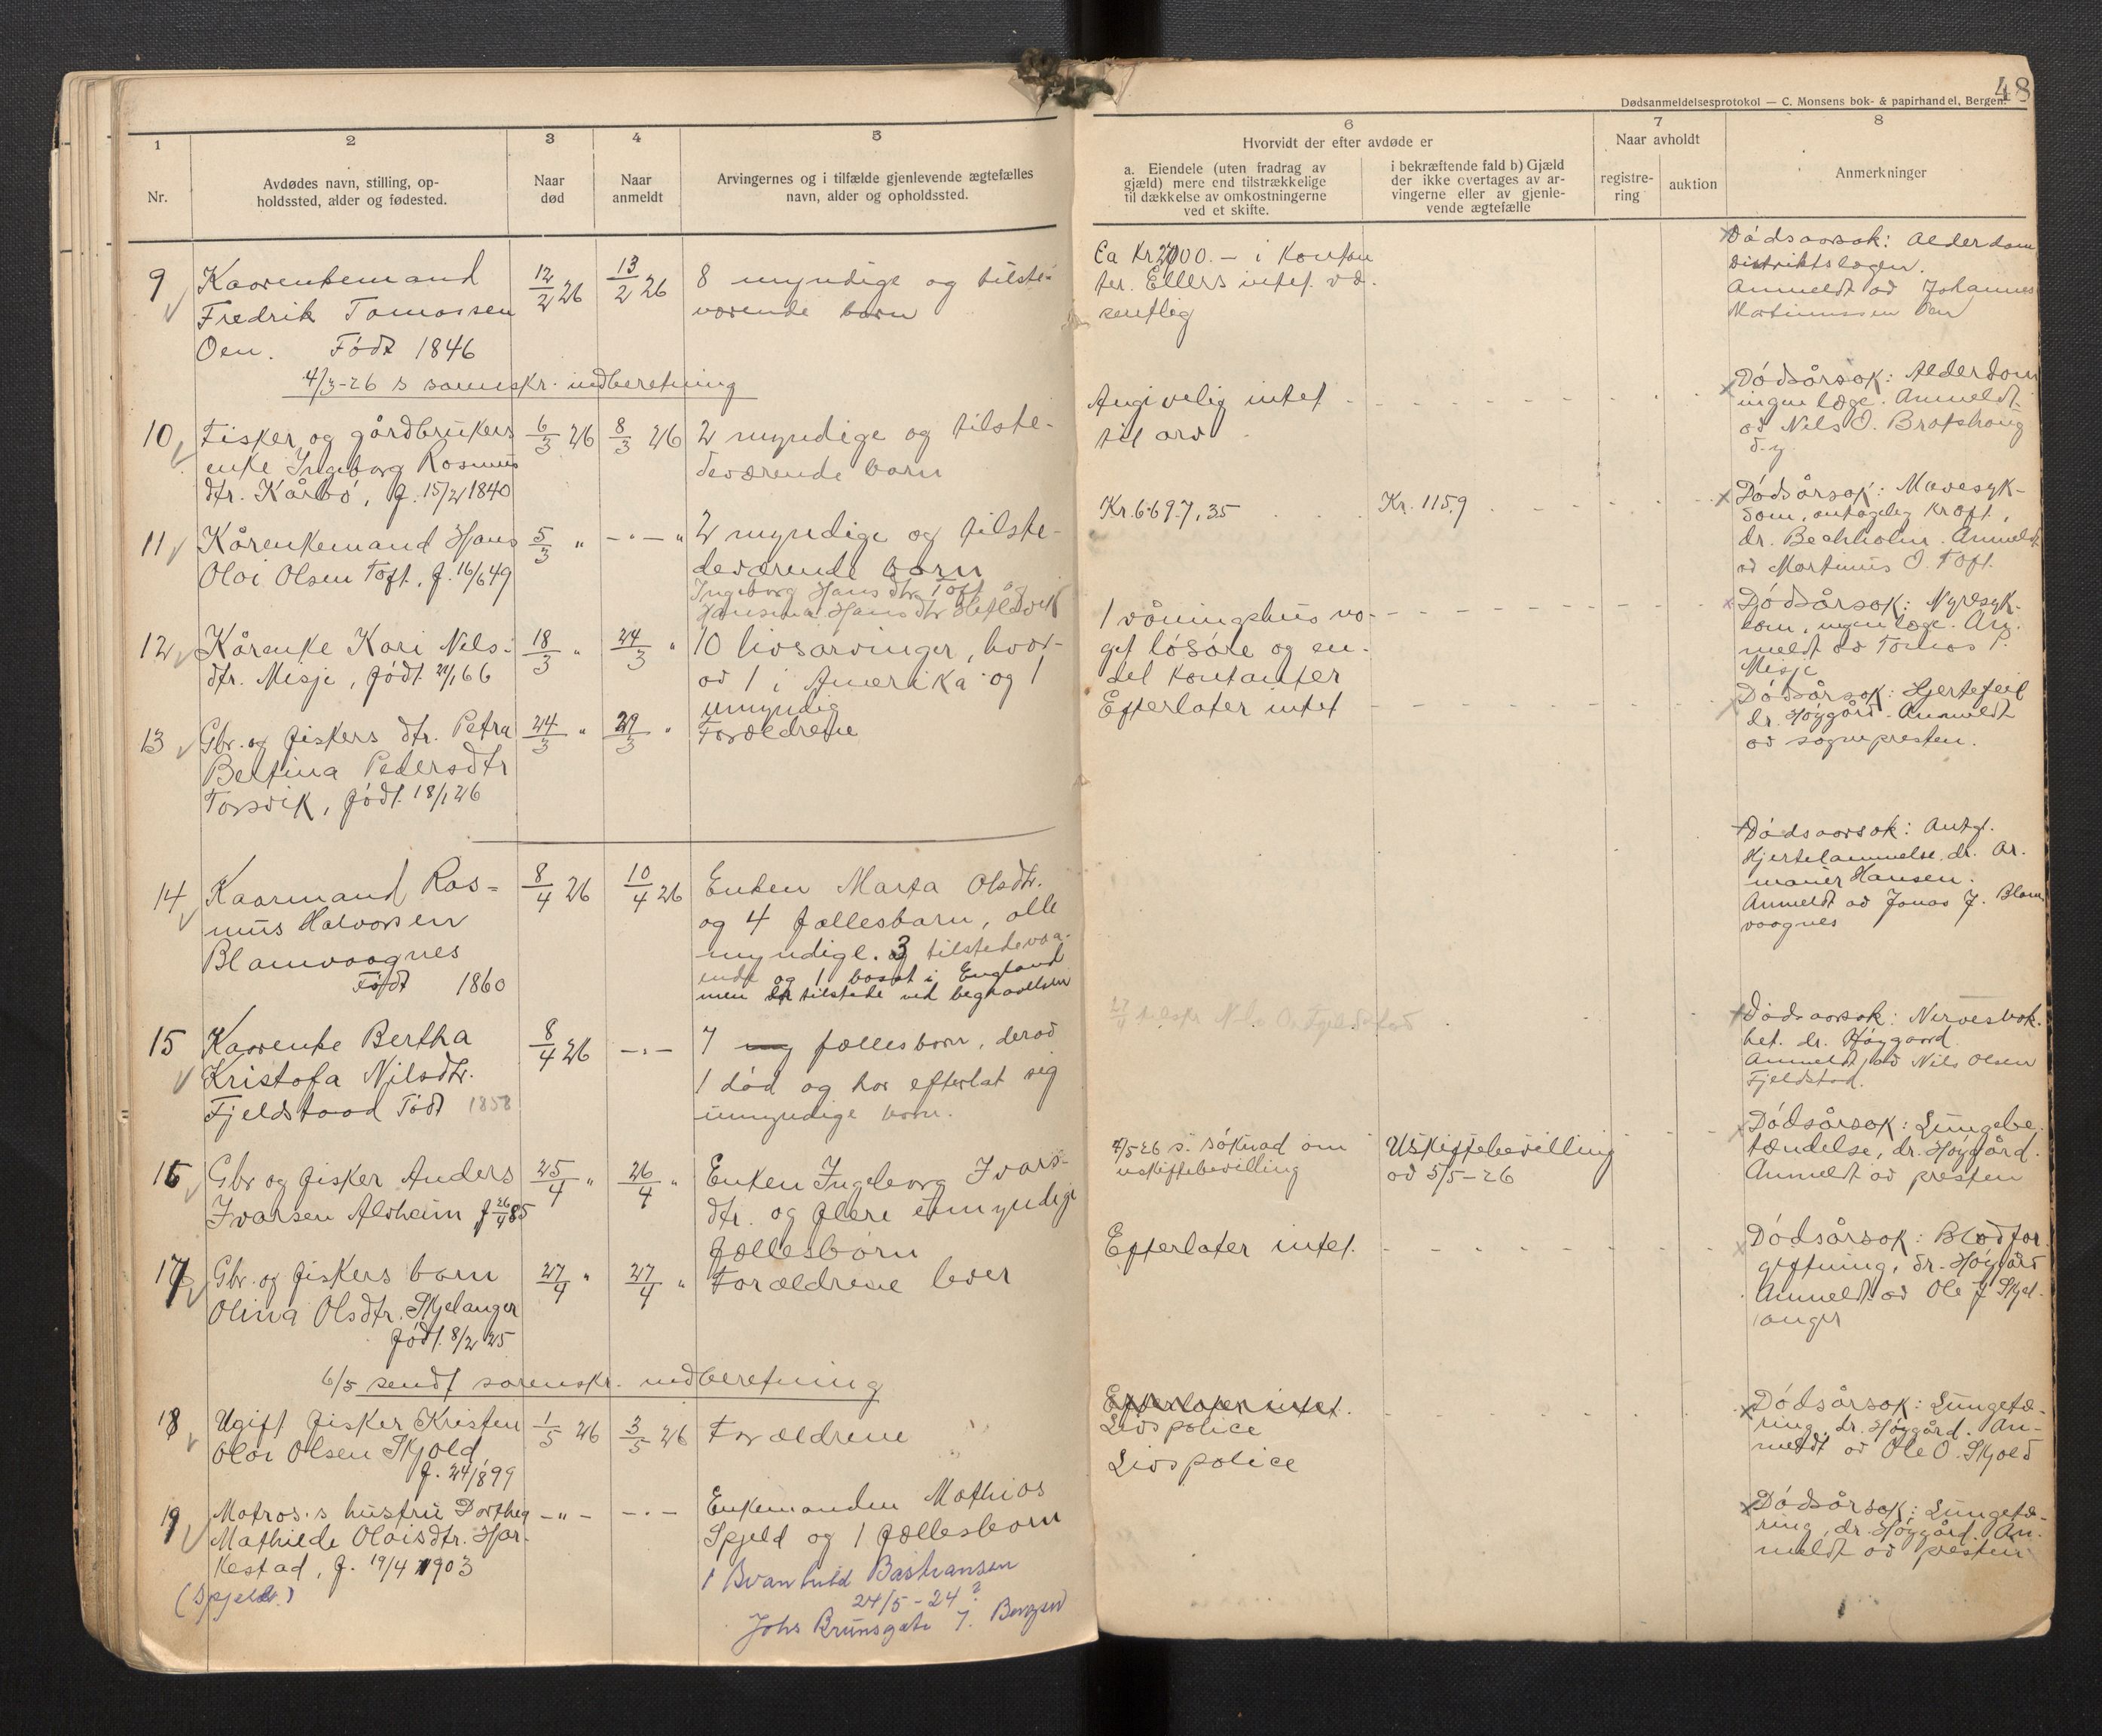 48
Dødsanmeldelsesprotokol — C. Monsens bok- & papirhandel, Bergen.
1 2 3 4 5
Nr.
Avdødes navn, stilling, op-
holdssted, alder og fødested.
Naar
død
Naar
anmeldt
Arvingernes og i tilfælde gjenlevende ægtefælles
navn, alder og opholdssted.
6
Hvorvidt der efter avdøde er
a. Eiendele (uten fradrag av
gjæld) mere end tilstrækkelige
til dækkelse av omkostningerne
ved et skifte.
i bekræftende fald b) Gjæld
der ikke overtages av ar-
vingerne eller av gjenle-
vende ægtefælle
7
Naar avholdt
registre-
ring
auktion
8
Anmerkninger
9
Kaarenkemand
Fredrik Tomassen
Oen. Født 1846
12/2 26
13/2 26
8 myndige og tilste-
værende barn
Ca Kr 2000.- i Kontan
ter. Ellers intet væ-
sentlig
Dødsaarsak: Alderdom
Distriktslægen.
Anmeldt av Johannes
Martinussen Oen
4/3-26 s sorenskr. indberetning
10
Fisker og gårdbrukers
enke Ingeborg Rasmus
dtr. Kårbø, f. 15/2 1840
6/3 26
8/3 26
2 myndige og tilste-
deværende barn
Angivelig intet
til arv
Dødsårsak: Alderdom
ingen læge. Anmeldt
av Nils O. Bratshaug
d.y.
11
Kårenkemand Hans
Olai Olsen Toft, f. 16/6 49
5/3 "
-"- "
2 myndige og tilste-
deværende barn
Ingeborg Hansdtr Toft og
Hansina Hansdtr Hefldvik
Kr. 6697,35
Kr. 1159
Dødsårsak: Mavesyk-
dom, antagelig kræft,
dr. Bechholm. Anmeldt
av Martinus O. Toft.
12
Kårenke Kari Nels-
dtr. Misje, født 21/1 66
18/3 "
24/3 "
10 livsarvinger, hvor-
av 1 i Amerika og 1
umyndig
1 våningshus no-
get løsøre og en-
del kontanter
Dødsårsak: Nyresyk-
dom, ingen læge. An-
meldt av Tomas P.
Misje
13
Gbr. og fiskers dtr. Petra
Bertina Pedersdtr
Torsvik, født 18/1 26
24/3 "
29/3 "
Forældrene
Efterlater intet
Dødsårsak: Hjertefeil
dr. Høygård. Anmeldt
av sognepresten.
14
Kaarmand Ras-
mus Halvorsen
Blomvaagnes
Født 1860
8/4 26
10/4 26
Enken Marta Olsdtr.
og 4 fællesbarn, alle
myndige. 3 tilstedevæ-
ende og 1 bosat i England
men er tilstede ved begravelsen
Dødsaarsak: Antgl.
Hjertelammelse, dr. Ar.
mauer Hansen.
Anmeldt av Jonas J. Blom
vaagnes
15
Kaarenke Bertha
Kristofa Nilsdtr.
Fjeldstad Født 1858
8/4 26
-"-
7 fællesbarn, derav
1 død og har efterlat sig
umyndige barn.
Dødsaarsak: Nervesvak-
het. dr. Høygaard
Anmeldt av Nils Olsen
Fjeldstad.
16
Gbr og fisker Anders
Ivarsen Alvheim f 26/4 85
25/4 "
26/4 "
Enken Ingeborg Ivars-
dtr. og flere umyndige
fællesbørn
4/5 26 s. søknad om
uskiftebevilling
Uskiftebevilling
av 5/5-26
Dødsårsak: Lungebe-
tændelse, dr. Høygård.
Anmeldt av presten
17
Gbr. og fiskers barn
Olina Olsdtr. Skjelanger
født 8/2 25
27/4 "
27/4 "
Forældrene lever
Efterlater intet.
Dødsårsak: Blodfor
giftning, dr. Høygård
Anmeldt av Ole J Skjel-
anger
6/5 sendt sorenskr. indberetning
18
Ugift fisker Kristen
Olai Olsen Skjold
f. 24/1 899
1/5 26
3/5 26
Forældrene
Efterlater intet.
Livspolice
Dødsårsak: Lungetæ-
ring, dr. Høygård. An-
meldt av Ole O. Skjold
19
Matros.s hustru Dorthea
Mathilde Olaisdtr. Har-
kestad, f. 19/4 1903
(Spjeld)
-"-
-"-
Enkemanden Mathias
Spjeld og 1 fællesbarn
1 Svanhild Bastiansen
24/5-24?
Johs Brunsgate 7. Bergen
Livspolice
Dødsårsak: Lungetæ-
ring, dr. Høygård. An-
meldt av presten